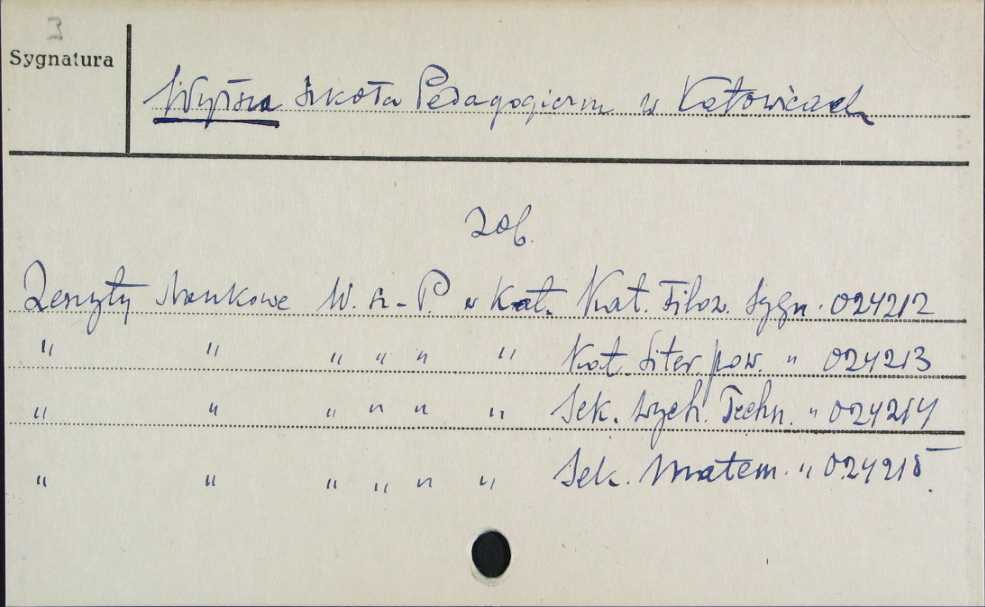 3
Sygnatura
Wyższa Szkoła Pedagogiczna w Katowicach
zob.
Zeszyty Naukowe W. Sz. P. w Kat. Kat. Filoz. Sygn. 024212
" " " " " " Kat. Liter. pow. " 024213
" " " " " " Sek. Wych. Techn. " 024214
" " " " " " Sek. Matem. " 024215